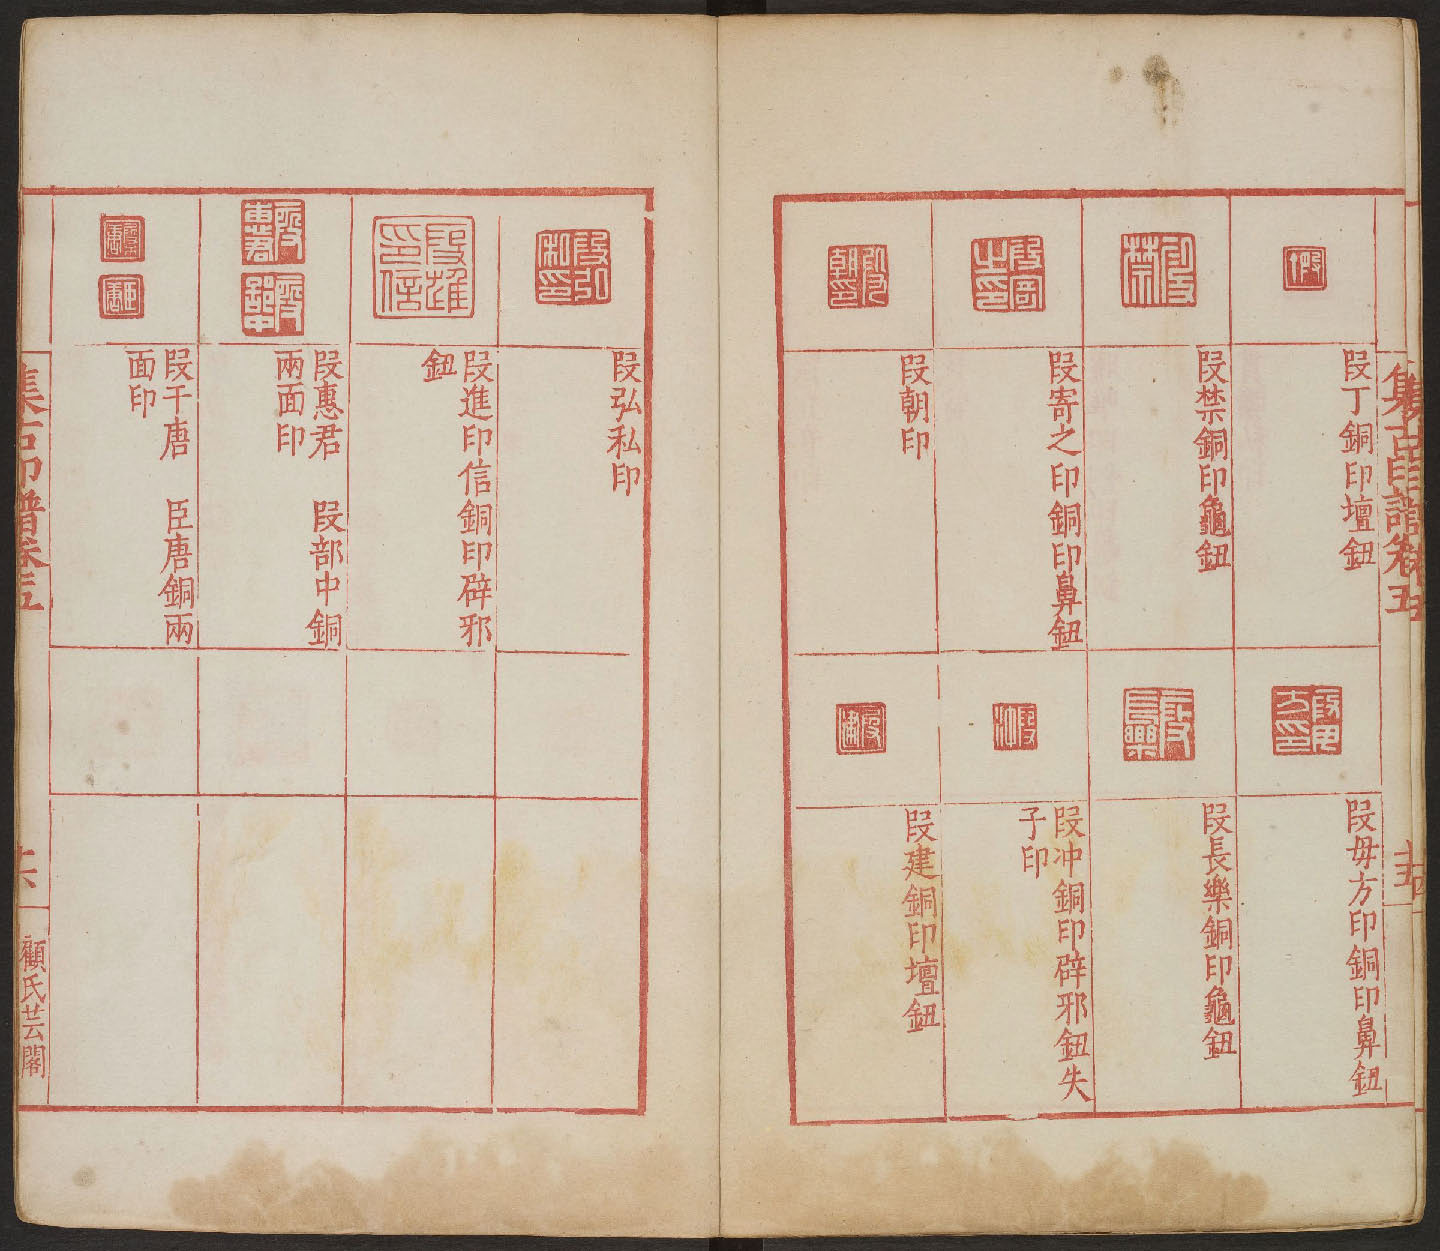 集古印譜卷五
段丁銅印壇鈕
段禁銅印龜鈕
段寄之印銅印鼻鈕
段朝印
段毋方印銅印鼻鈕
段長樂銅印龜鈕
段冲銅印辟邪鈕失
子印
段建銅印壇鈕
段弘私印
段進印信銅印辟邪
鈕
段惠君　段部中銅
兩面印
段干唐　臣唐銅兩
面印
集古印譜卷五
十六
顧氏芸閣